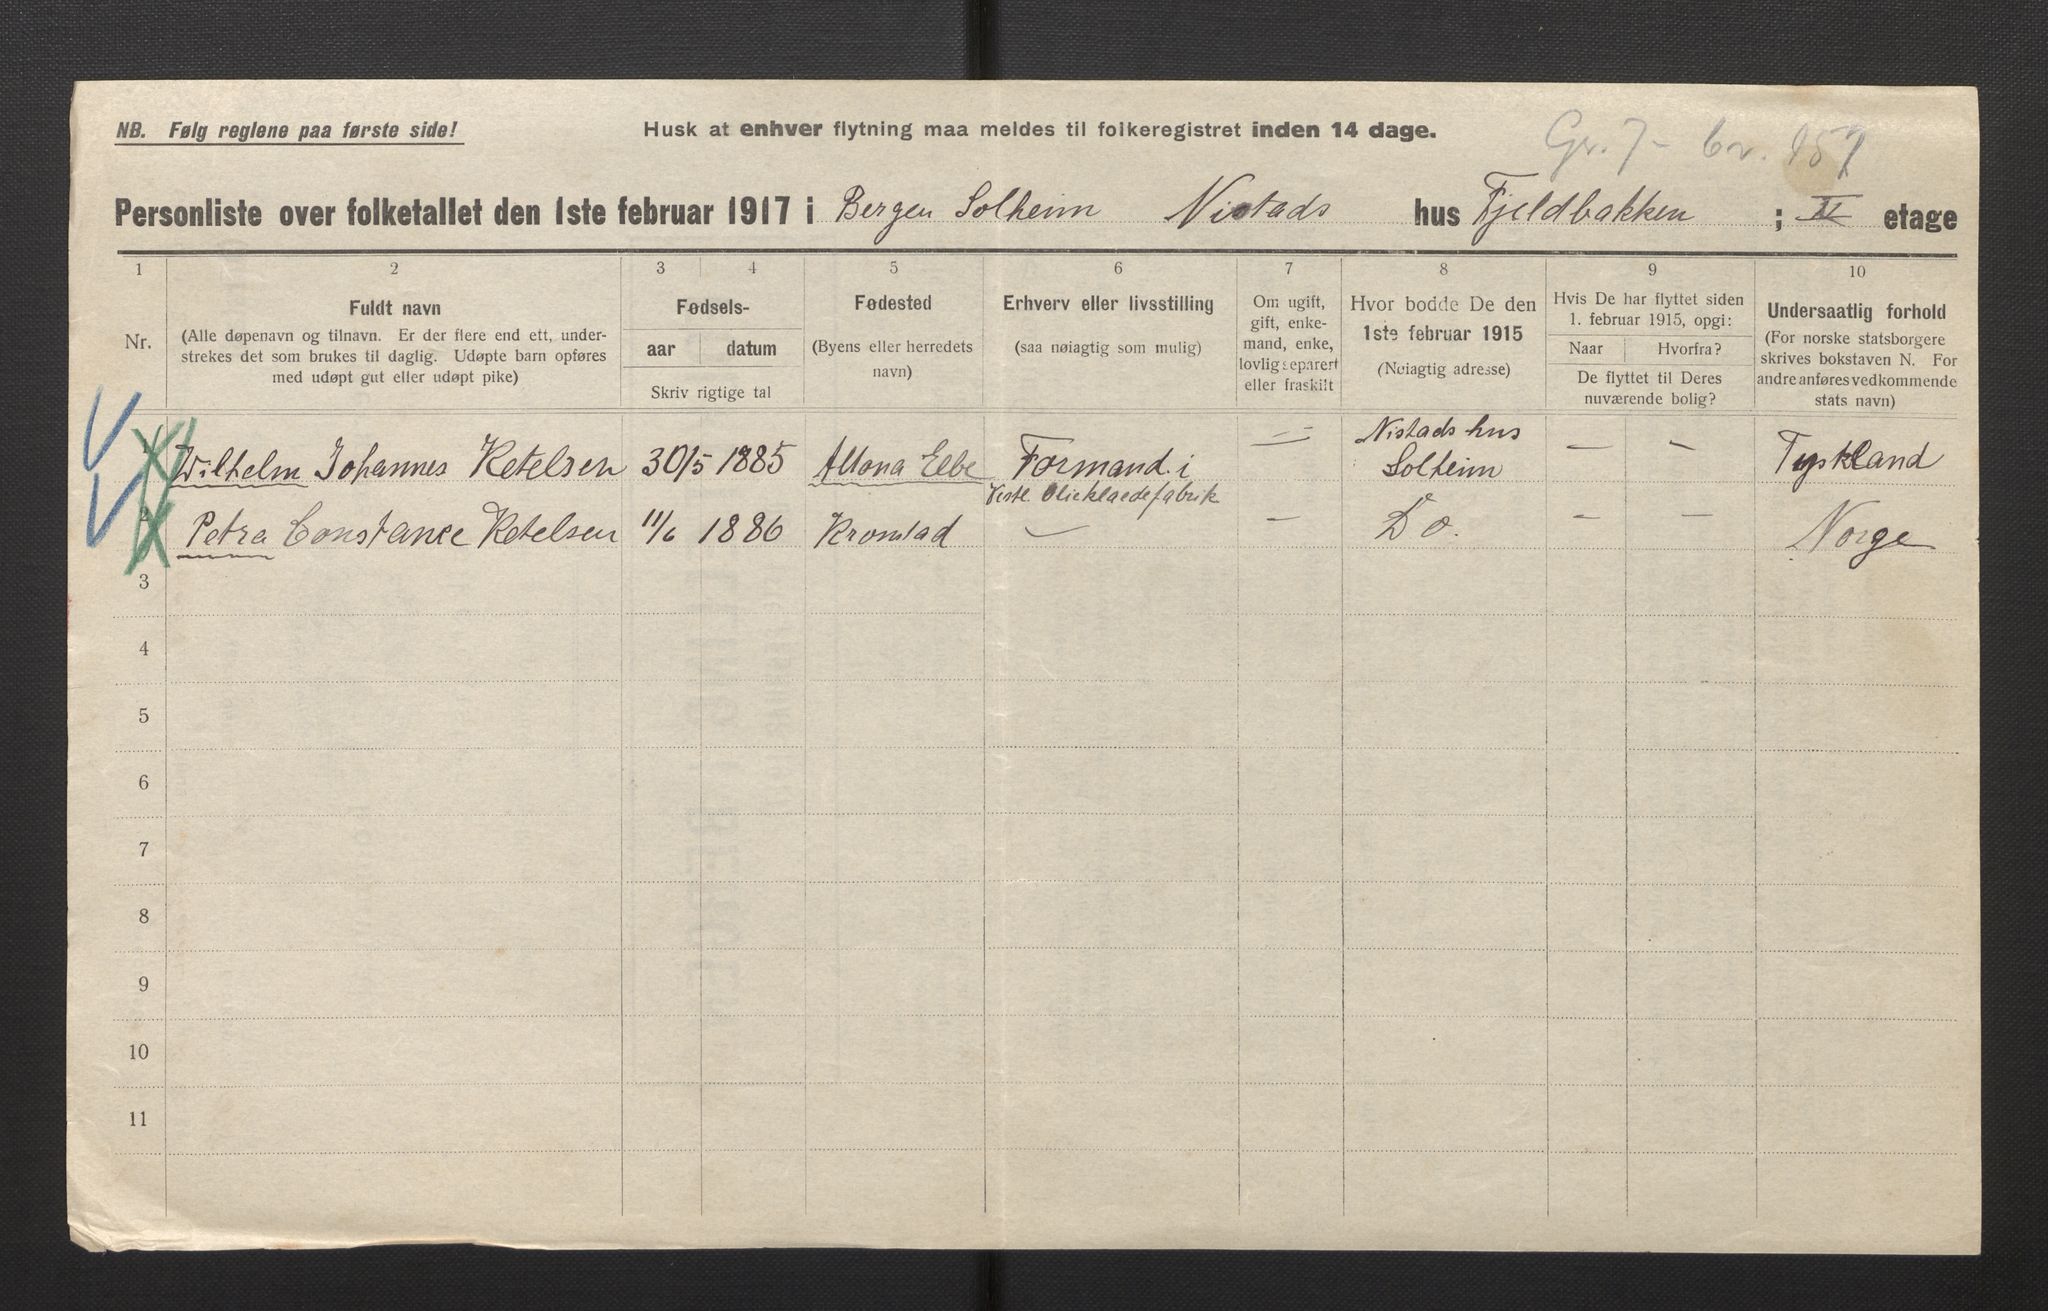 NB. Følg reglene paa første side!
Husk at enhver flytning maa meldes til folkeregistret inden 14 dage.
Gr. 7 - br. 157
Personliste over folketallet den 1ste februar 1917 i Bergen Solheim Nistads hus Fjeldbakken ; II etage
1 2 3 4 5 6 7 8 9 10
Nr.
Fuldt navn
(Alle døpenavn og tilnavn. Er der flere end ett, under-
strekes det som brukes til daglig. Udøpte barn opføres
med udøpt gut eller udøpt pike)
Fødsels-
aar datum
Skriv rigtige tal
Fødested
(Byens eller herredets
navn)
Erhverv eller livsstilling
(saa nøiagtig som mulig)
Om ugift,
gift, enke-
mand, enke,
lovlig separert
eller fraskilt
Hvor bodde De den
1ste februar 1915
(Nøiagtig adresse)
Hvis De har flyttet siden
1. februar 1915, opgi:
Naar Hvorfra?
De flyttet til Deres
nuværende bolig?
Undersaatlig forhold
(For norske statsborgere
skrives bokstaven N. For
andre anføres vedkommende
stats navn)
1 Wilhelm Johannes Ketelsen 30/5 1885 Altona Elbe Formand i — Nistads hus — — Tyskland
Vestl. Olieklaedefabrik Solheim
2 Petra Constance Ketelsen 11/6 1886 Kronstad — — Do. — — Norge
3
4
5
6
7
8
9
10
11